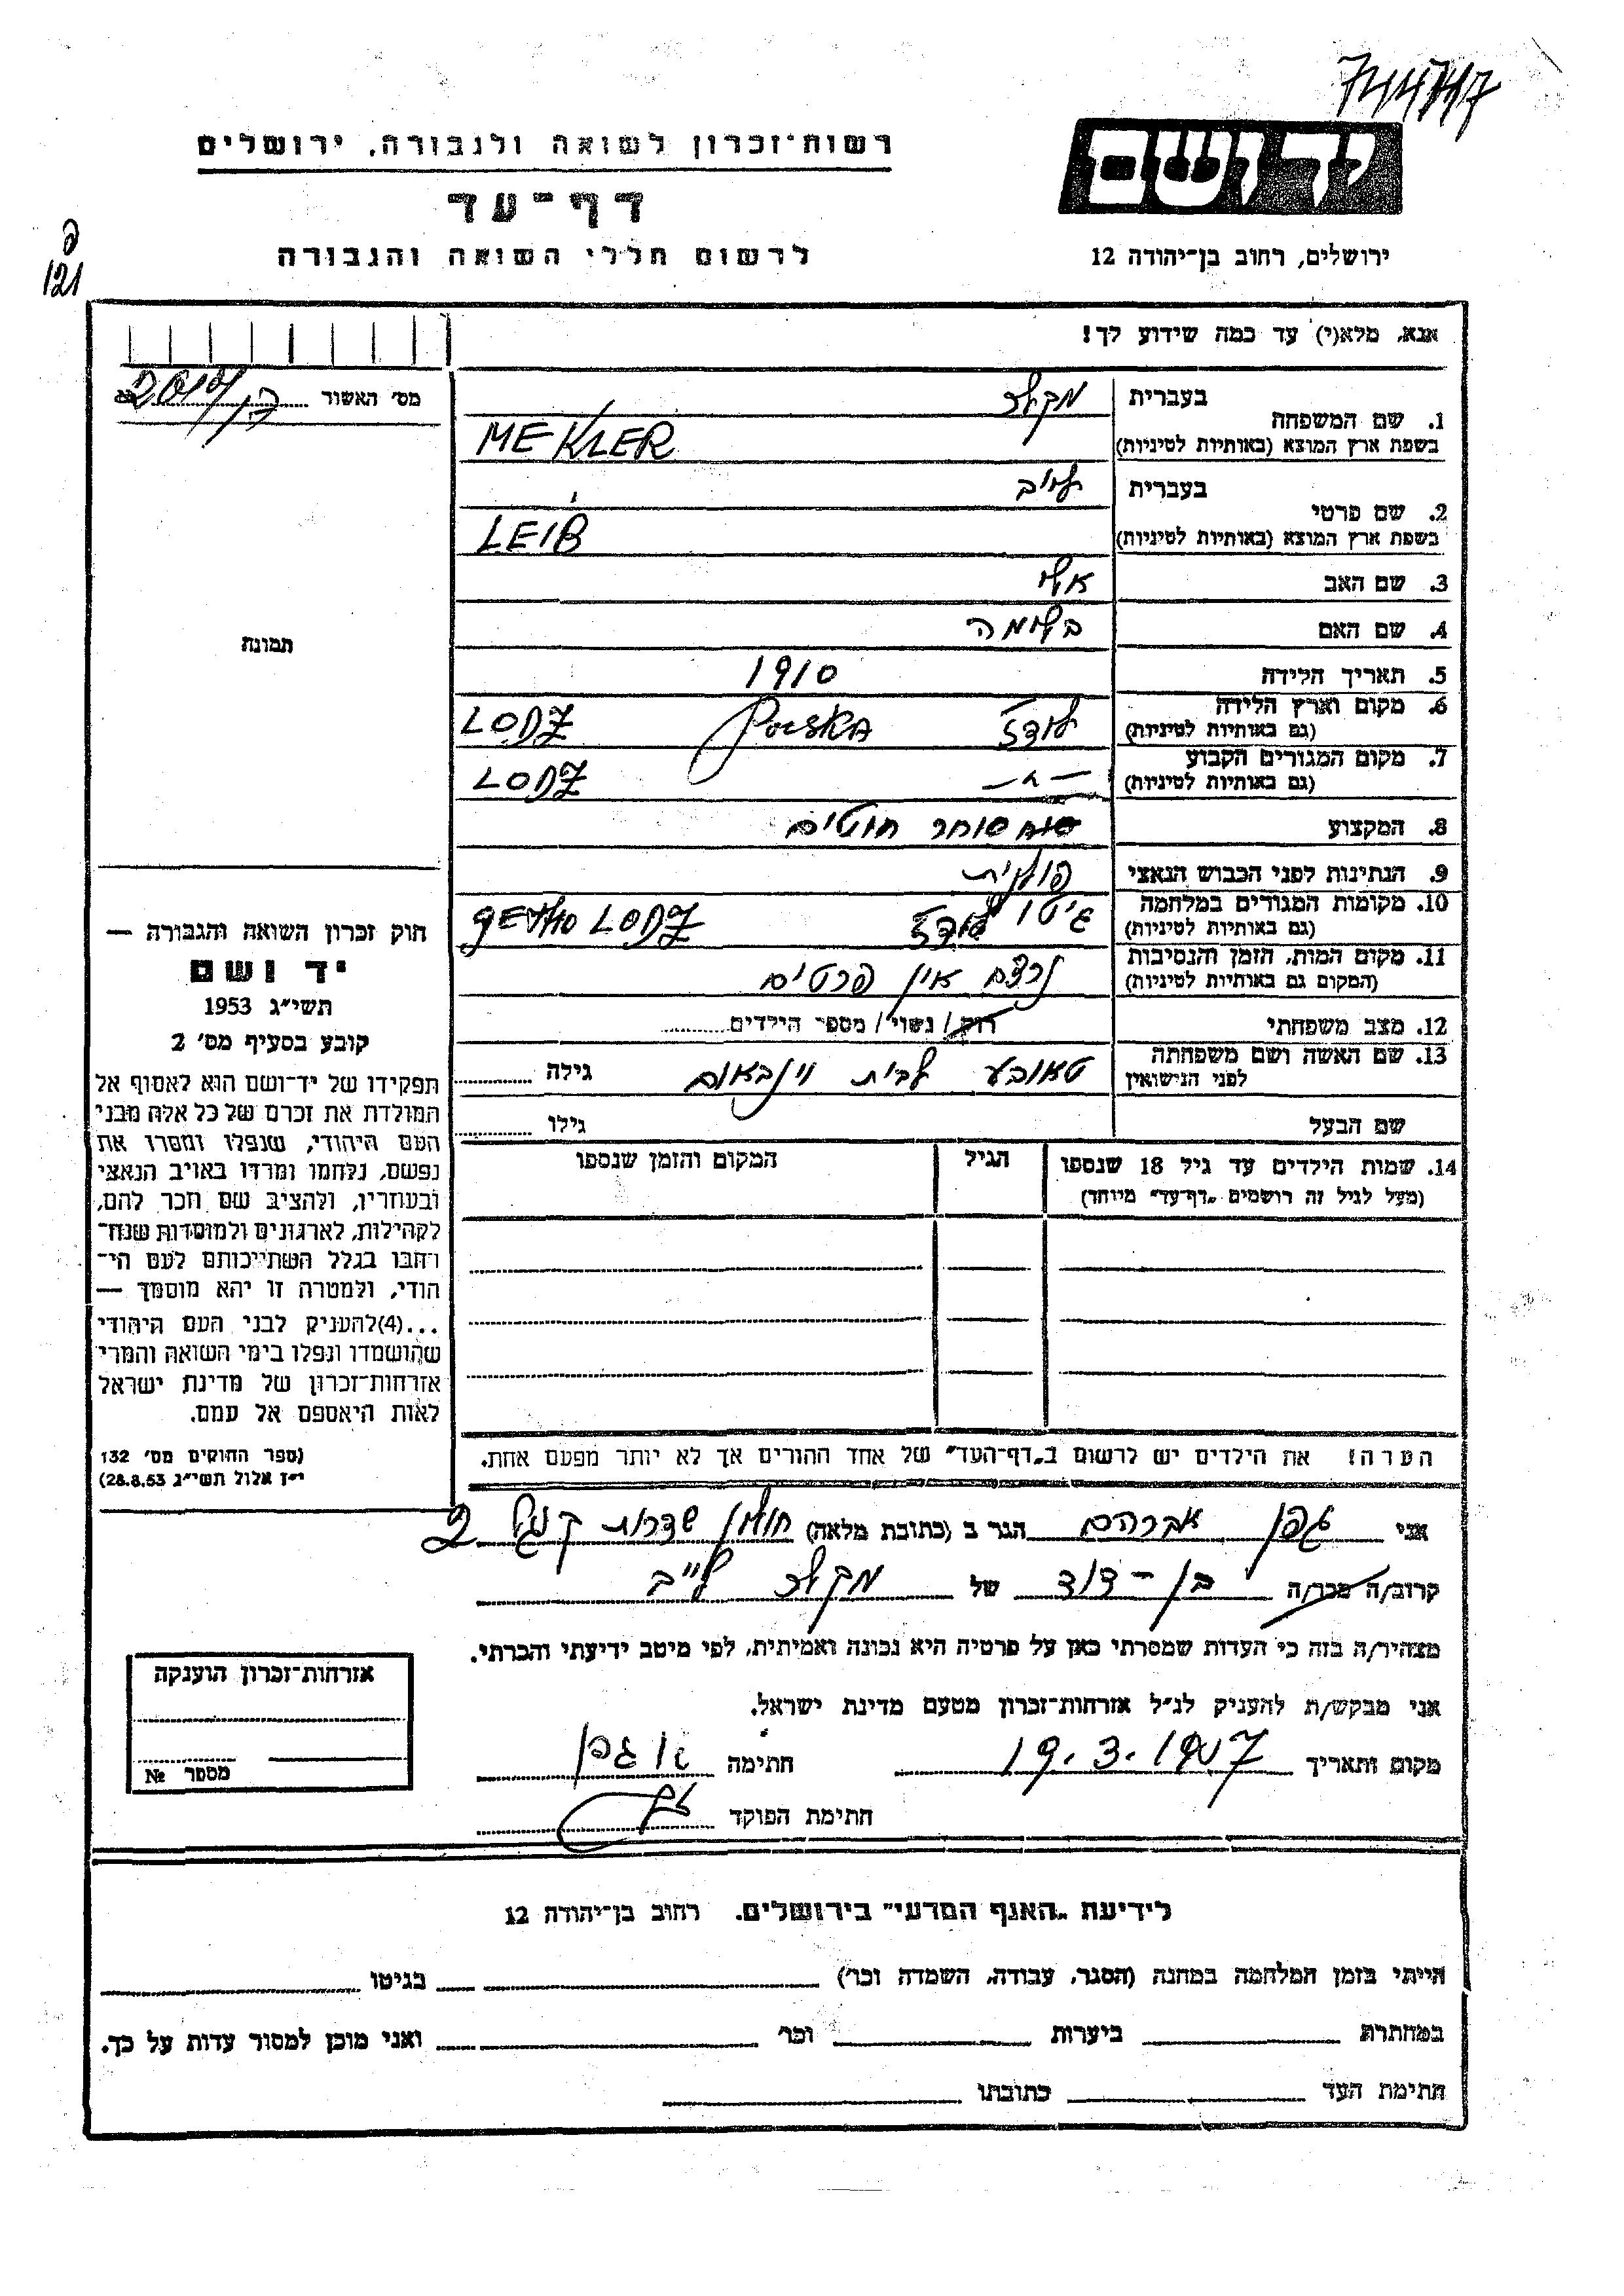 רשות־זכרון לשואה ולגבורה, ירושלים
דף־עד
לרשום חללי השואה והגבורה
יד ושם
ירושלים, רחוב בן־יהודה 12
121
אנא, מלא(י) עד כמה שידוע לך!
מס׳ האשור
בעברית מקלר
1. שם המשפחה
בשפת ארץ המוצא (באותיות לטיניות) MEKLER
בעברית לייב
2. שם פרטי
בשפת ארץ המוצא (באותיות לטיניות) LEIB
3. שם האב
4. שם האם בלומה
5. תאריך הלידה 1910
6. מקום וארץ הלידה לודז Polska LODZ
(גם באותיות לטיניות)
7. מקום המגורים הקבוע — " — LODZ
(גם באותיות לטיניות)
8. המקצוע סוחר חוטים
9. הנתינות לפני הכבוש הנאצי פולנית
10. מקומות המגורים במלחמה גיטו לודז GETHO LODZ
(גם באותיות לטיניות)
11. מקום המות, הזמן והנסיבות נרצח אין פרטים
(המקום גם באותיות לטיניות)
12. מצב משפחתי רווק / נשוי / מספר הילדים
13. שם האשה ושם משפחתה טאובע לבית וינבאום גילה
לפני הנישואין
שם הבעל גילו
14. שמות הילדים עד גיל 18 שנספו הגיל המקום והזמן שנספו
(מעל לגיל זה רושמים „דף־עד" מיוחד)
הערה! את הילדים יש לרשום ב„דף־העד" של אחד ההורים אך לא יותר מפעם אחת.
תמונה
חוק זכרון השואה והגבורה —
יד ושם
תשי״ג 1953
קובע בסעיף מס׳ 2
תפקידו של יד־ושם הוא לאסוף אל
המולדת את זכרם של כל אלה מבני
העם היהודי, שנפלו ומסרו את
נפשם, נלחמו ומרדו באויב הנאצי
ובעוזריו, ולהציב שם וזכר להם,
לקהילות, לארגונים ולמוסדות שנח־
רבו בגלל השתייכותם לעם הי־
הודי, ולמטרה זו יהא מוסמך —
...(4) להעניק לבני העם היהודי
שהושמדו ונפלו בימי השואה והמרי
אזרחות־זכרון של מדינת ישראל
לאות היאספם אל עמם.
(ספר החוקים מס׳ 132
י״ז אלול תשי״ג 28.8.53)
אני גפן אברהם הגר ב (כתובת מלאה) חולון שדרות קוגל 2
קרוב/ה מכר/ה בן - דוד של מקלר לייב
מצהיר/ה בזה כי העדות שמסרתי כאן על פרטיה היא נכונה ואמיתית, לפי מיטב ידיעתי והכרתי.
אני מבקש/ת להעניק לנ״ל אזרחות־זכרון מטעם מדינת ישראל.
מקום ותאריך 19.3.1957 חתימה א גפן
חתימת הפוקד
אזרחות־זכרון הוענקה
מספר №
לידיעת „האגף המדעי" בירושלים. רחוב בן־יהודה 12
הייתי בזמן המלחמה במחנה (הסגר, עבודה, השמדה וכר׳) בגיטו
במחתרת ביערות וכר׳ ואני מוכן למסור עדות על כך.
חתימת העד כתובתו